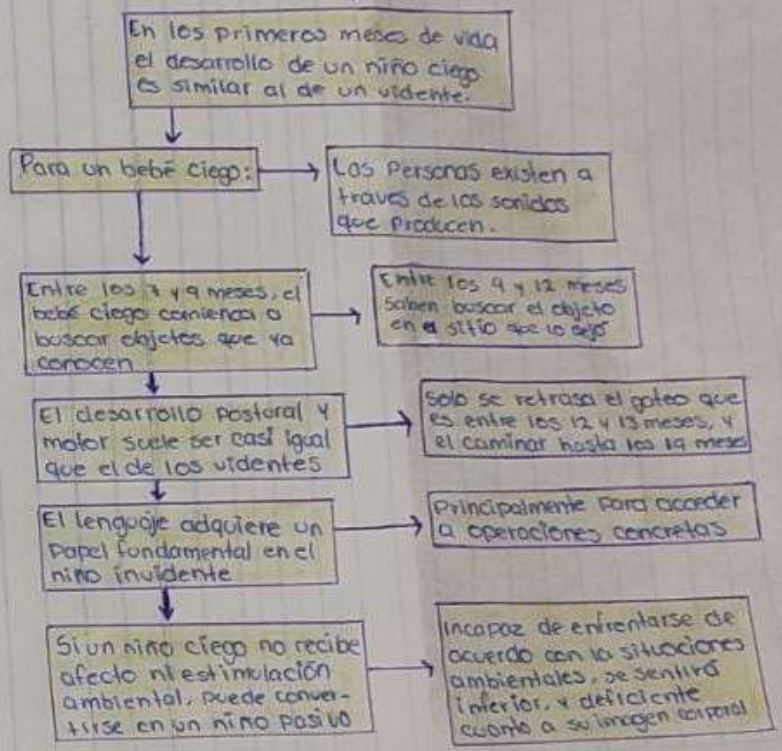 En los primeros meses de vida
el desarrollo de un niño ciego
es similar al de un vidente.
Para un bebé ciego:
Las Personas existen a
traves de los sonidos
que producen.
Entre los 7 y 9 meses, el
bebé ciego comienca a
buscar objetos que ya
conocen
Entre los 9 y 12 meses
Saben buscar el objeto
en el sitio que lo dejó
El desarrollo postural y
motor suele ser casi igual
que el de los videntes
Solo se retrasa el gateo que
es entre los 12 y 13 meses, y
el caminar hasta los 19 meses
El lenguaje adquiere un
Papel fundamental en el
niño invidente
Principalmente para acceder
a operaciones concretas
Si un niño ciego no recibe
afecto ni estimulación
ambiental, puede conver-
tirse en un niño pasivo
Incapaz de enfrentarse de
acuerdo con la situaciones
ambientales, se sentirá
inferior, y deficiente
cuanto a su imagen corporal